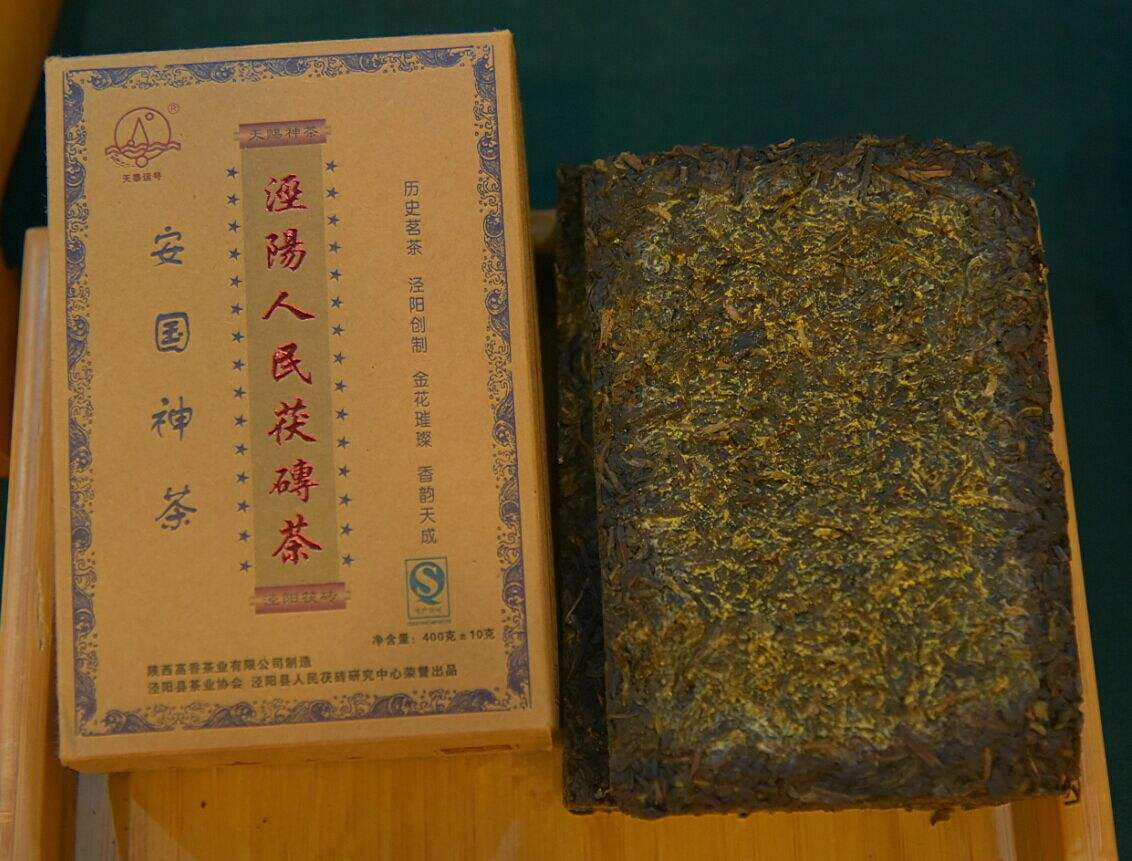 ®
天泰逞号
安国神茶
天賜神茶
涇陽人民茯磚茶
泾阳茯砖
历史茗茶 泾阳创制 金花璀璨 香韵天成
净含量：400克±10克
陕西高香茶业有限公司制造
泾阳县茶业协会 泾阳县人民茯砖研究中心荣誉出品